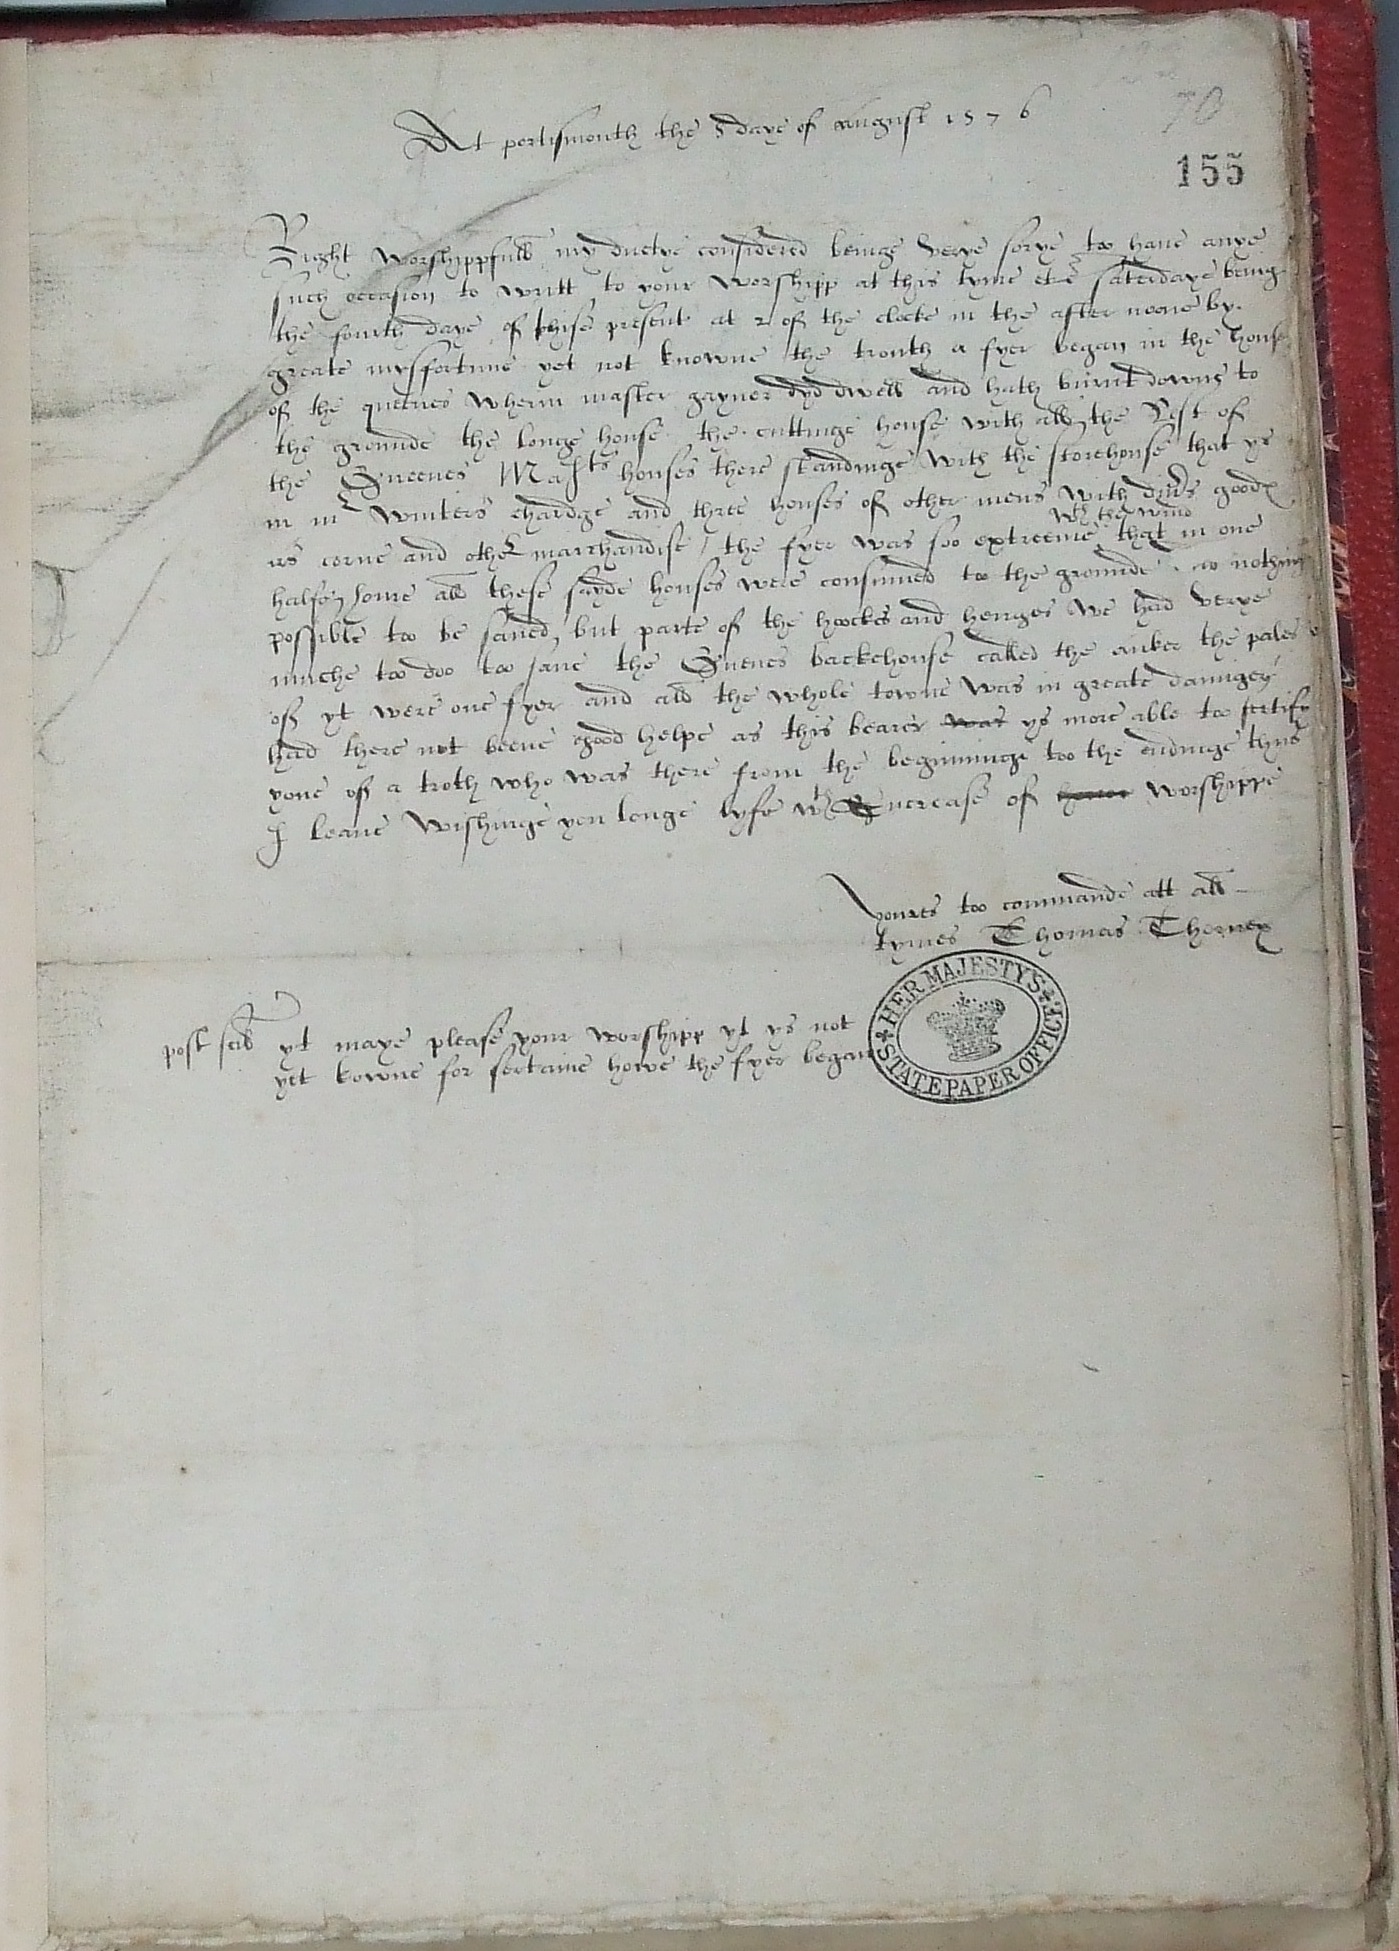 70
155
At portismouth the 5 daye of August 1576
Right worshippfull my duetye considered beinge verye sorye too have anye
such occasion to writt to your worshipp at this tyme satterdaye being
the fourth daye of thise present at 2 of the clocke in the after noone by
greate myssfortune yet not knowne the trouth a fyer began in the house
of the quenes wherin master gayner dyd dwell and hath burnt downe to
the grounde the longe house the cuttinge house with all the Rest of
the Queenes Matis houses there standinge with the storehouse that ys
in mr winters chardge and three houses of other mens with divrs goodes
as corne and other marchandise / the fyer was soo extreeme wth the wind that in one
halfe howre all these sayde houses were consumed too the grounde no nothing
possible too be saved, but parte of the hoockes and henges we had verye
muche too doo too save the Quenes backehouse called the anker the pales
off yt were one fyer and all the whole towne was in greate daunger
had there not beene good helpe as this bearer was ys more able too sertify
youe off a troth who was there from the beginninge too the endinge thus
I leave wishinge you longe lyfe wth Encrease of worshippe
youres too commande att all
tymes Thomas Thorney
post scrib yt maye please your worshipp yt ys not
yet kowne for sertaine howe the fyer began
HER MAJESTYS STATE PAPER OFFICE